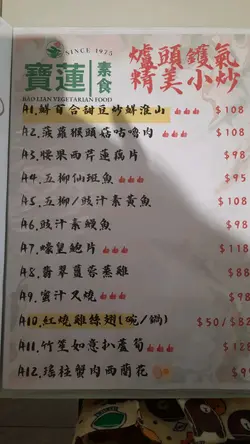 SINCE 1975
寶蓮 素食
BAO LIAN VEGETARIAN FOOD
爐頭鑊氣
精美小炒
A1.鮮百合甜豆炒鮮淮山 $108
A2.菠蘿猴頭菇咕嚕肉 $108
A3.腰果西芹蓮藕片 $95
A4.五柳仙斑魚 $98
A5.五柳/豉汁素黃魚 $108
A6.豉汁素鰻魚 $98
A7.蠔皇鮑片 $118
A8.翡翠蒸雞 $88
A9.蜜汁叉燒 $98
A10.紅燒雞絲翅(碗/鍋) $50/$8
A11.竹笙如意扒蘆筍 $128
A12.瑤柱蟹肉西蘭花 $9